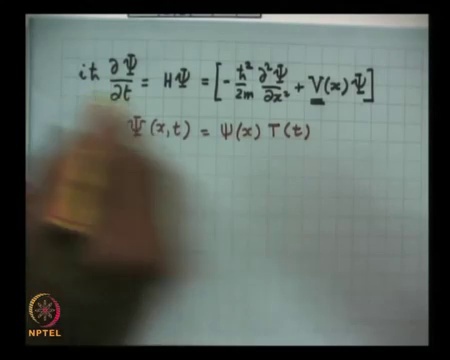 iħ ∂Ψ/∂t = HΨ = [-ħ²/2m ∂²Ψ/∂x² + V(x)Ψ]
Ψ(x,t) = ψ(x) T(t)
NPTEL